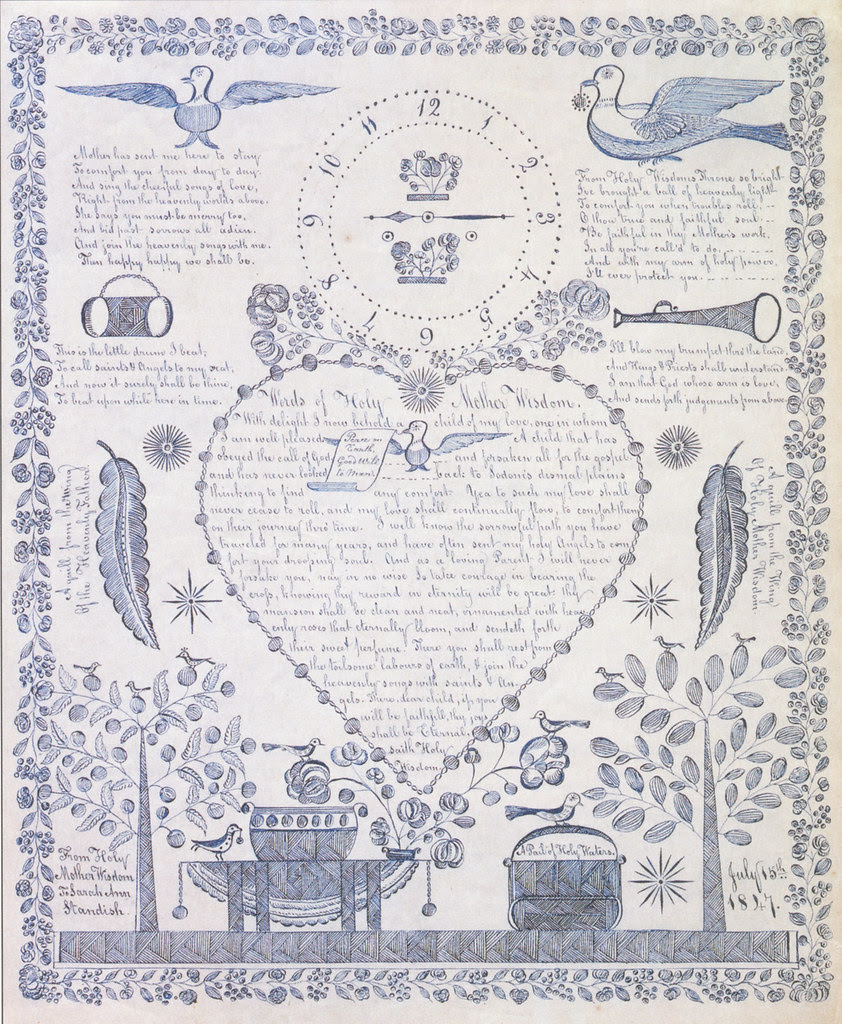 12
1
2
3
4
5
6
7
8
9
10
11
Mother has sent me here to stay
To comfort you from day to day
And sing the cheerful songs of love,
Right from the heavenly worlds above.
She says you must be merry too,
And bid past sorrows all adieu.
And join the heavenly songs with me.
Then happy happy we shall be.
From Holy Wisdoms Throne so bright
I've brought a ball of heavenly light
To comfort you when troubles roll
O thou true and faithful soul
Be faithful in thy Mother's work,
In all you're call'd to do,
And with my arm of holy power,
I'll ever protect you.
This is the little drum I beat;
To call saints & Angels to my seat,
And now it surely shall be thine,
To beat upon while here in time.
I'll blow my trumpet thro the land
And Kings & Priests shall understand
I am that God whose arm is love,
And sends forth judgements from above
Words of Holy Mother Wisdom.
With delight I now behold a child of my love, one in whom
I am well pleased A child that has
obeyed the call of God and forsaken all for the gospel
and has never looked back to Sodom's dismal plains
thinking to find any comfort. Yea to such my love shall
never cease to roll, and my love shall continually flow, to comfort them
on their journey thro' time. I well know the sorrowful path you have
traveled for many years, and have often sent my holy Angels to com
fort your drooping soul. And as a loving Parent I will never
forsake you, nay in no wise So take courage in bearing the
cross, knowing thy reward in eternity will be great thy
mansion shall be clean and neat, ornamented with heav
enly roses that eternally bloom, and sendeth forth
their sweet perfume. There you shall rest from
the toilsome labours of earth, & join the
heavenly songs with saints & An
gels. There, dear child, if you
will be faithful, thy joys
shall be Eternal,
saith Holy
Wisdom.
Peace on
Earth,
Good Will
to Men
A quill from the Wing
Of the Heavenly Father.
A quill from the Wing
Of Holy Mother Wisdom
From Holy
Mother Wisdom
To Sarah Ann
Standish.
A Pail of Holy Waters.
July 15th
1847.